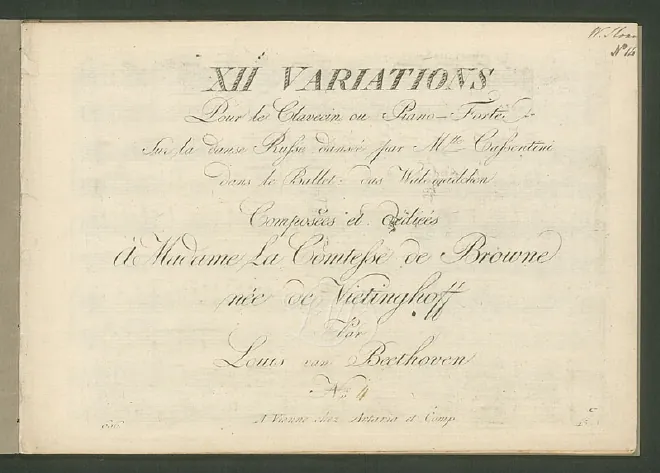 XII VARIATIONS
Pour le Clavecin ou Piano-Forte
Sur la danse Russe dansée par Mlle Cassentini
dans le Ballet: das Waldmädchen
Composées et dediées
á Madame La Comtesse de Browne
née de Vietinghoff
Par
Louis van Beethoven
No 4
A Vienne chez Artaria et Comp